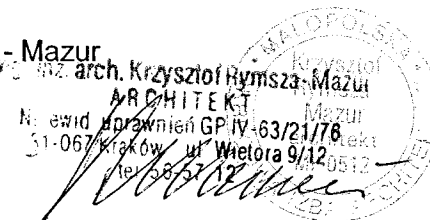 - Mazur
mgr inż. arch. Krzysztof Rymsza-Mazur
ARCHITEKT
Nr ewid. uprawnień GP IV-63/21/76
31-067 Kraków ul. Wietora 9/12
tel. 56-57-12
MAŁOPOLSKA
Krzysztof
Mazur
0512